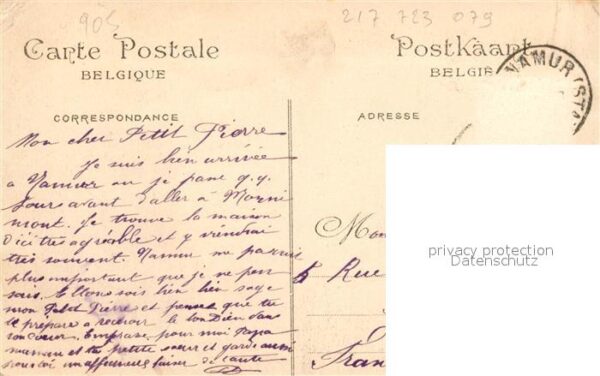 905
217 723 079
Carte Postale
BELGIQUE
Postkaart
BELGIË
NAMUR (STA
CORRESPONDANCE
ADRESSE
Mon cher Petit Pierre
Je suis bien arrivée
a Namur ou je passe q.q.
jours avant d'aller à Morni
mont. Je trouve la maison
d'ici très agréable et y viendrai
très souvent. Namur me parait
plus important que je ne pen
sais. Et toi sois bien bien sage
mon Petit Pierre et pense que tu
te prépare a recevoir le bon Dieu dans
ton coeur. Embrasse pour moi Papa
maman et ta petite soeur et garde aussi
pour toi un affectueux baiser de tante
Mon
5 Rue
Fran
privacy protection
Datenschutz